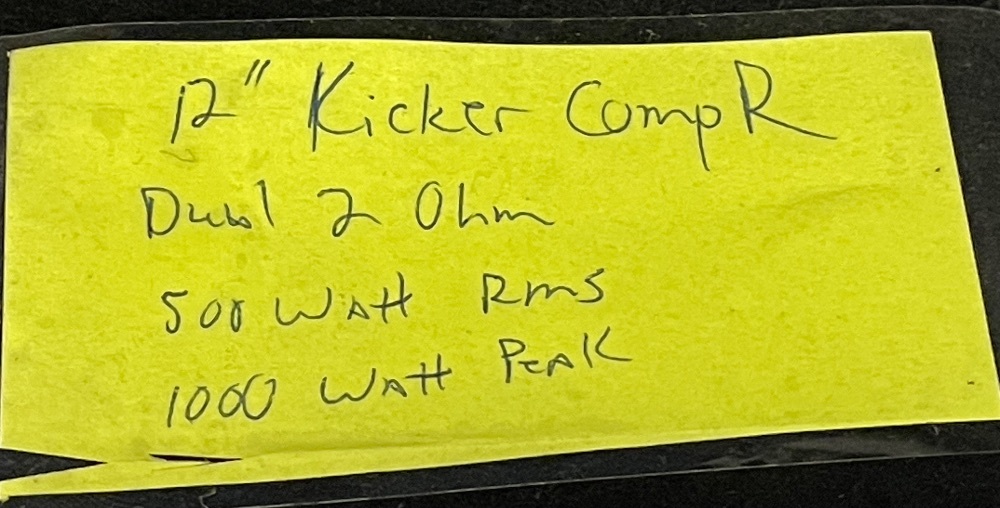 12" Kicker CompR
Dual 2 Ohm
500 Watt RMS
1000 Watt Peak